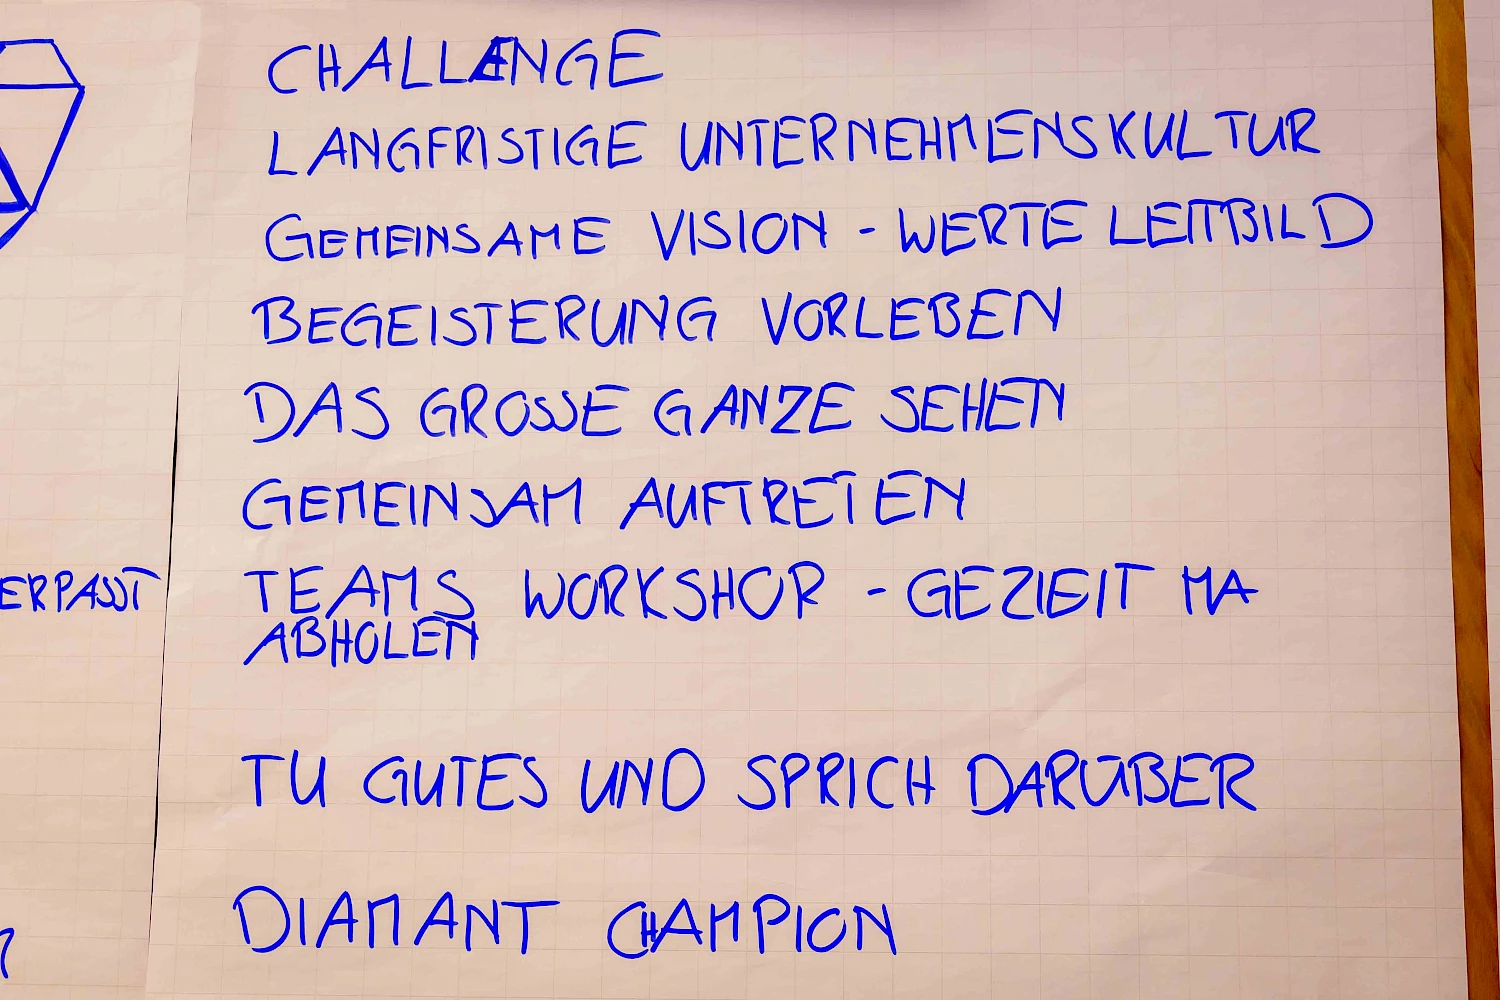 CHALLENGE
LANGFRISTIGE UNTERNEHMENSKULTUR
GEMEINSAME VISION - WERTE LEITBILD
BEGEISTERUNG VORLEBEN
DAS GROSSE GANZE SEHEN
GEMEINSAM AUFTRETEN
ERPASST
TEAMS WORKSHOP - GEZIEIT MA
ABHOLEN
TU GUTES UND SPRICH DARÜBER
DIAMANT CHAMPION